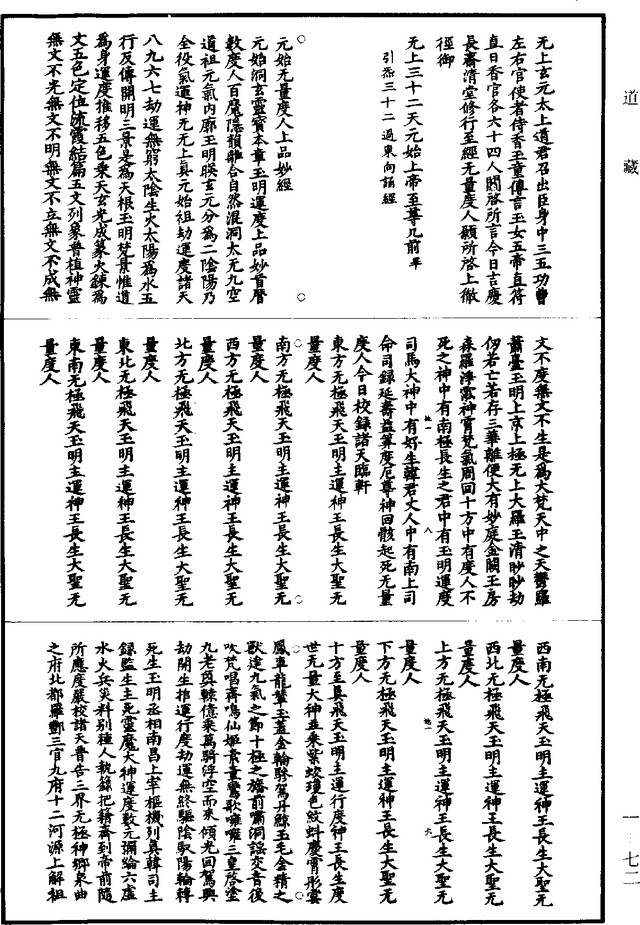 道藏
无上玄元太上道君召出臣身中三五功曹
左右官使者侍香玉童傳言玉女五帝直符
直日香官各六十四人關啓所言今日吉慶
長齋清堂修行至經无量度人願所啓上徹
徑御
无上三十二天元始上帝至尊几前畢
引炁三十二過東向誦經
元始无量度人上品妙經
元始洞玄靈寶本章玉明運度上品妙首曆
數度人百魔隱韻離合自然混洞太无九空
道祖元氣內廓玉明暎玄元分爲二隂陽乃
全役氣運神元无上真元始祖劫運度諸天
八九六七劫運無窮太隂生火太陽爲水五
行反傳開明三景是爲天根玉明梵景惟道
爲身運度推移五色乘天玄光成篆火鍊爲
文五色定位流霞結篇五文列象普植神靈
無文不光無文不明無文不立無文不成無
文不度無文不生是爲大梵天中之天鬱羅
蕭臺玉明上京上極无上大羅玉清眇眇劫
仞若亡若存三華離便大有妙庭金闕玉房
森羅淨泓神霄梵氣周回十方中有度人不
死之神中有南極長生之君中有玉明運度
司馬大神中有好生韓君丈人中有南上司
命司録延壽益筭度厄尊神回骸起死无量
度人今日校録諸天臨軒
東方无極飛天玉明主運神王長生大聖无
量度人
南方无極飛天玉明主運神王長生大聖无
量度人
西方无極飛天玉明主運神王長生大聖无
量度人
北方无極飛天玉明主運神王長生大聖无
量度人
東北无極飛天玉明主運神王長生大聖无
量度人
東南无極飛天玉明主運神王長生大聖无
量度人
西南无極飛天玉明主運神王長生大聖无
量度人
西北无極飛天玉明主運神王長生大聖无
量度人
上方无極飛天玉明主運神王長生大聖无
量度人
下方无極飛天玉明主運神王長生大聖无
量度人
十方至真飛天玉明主運行度神王長生度
世无量大神並乘紫蛟瓊色紋虯慶霄彤雲
鳳車龍輦玉蓋金輪驂駕丹鯨玉毛金精之
獸逵九氣之節十極之旛前嘯洞謡交音後
吹梵唱齊鳴山姬素童鸞歌嗺嗺三皇啓塗
九老與轅億乘萬騎浮空而來傾光回駕輿
劫開生推運行度劫運無終驅隂馭陽輪轉
死生玉明丞相南昌上宰樞機列真韓司主
録監生主死靈魔大神運度數元彌綸六虛
水火兵災料別種人執録把籍齊到帝前隨
所應度嚴校諸天普告三界无極神鄉泉曲
之府北都羅酆三官九府十二河源上解祖
一-七二